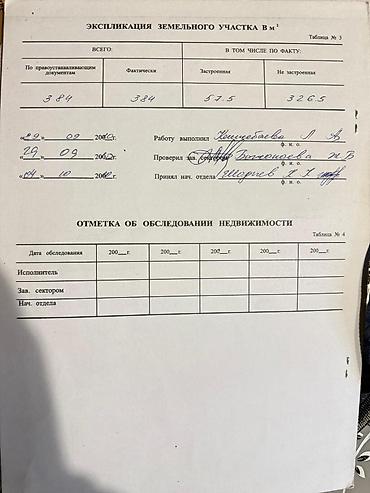 ЭКСПЛИКАЦИЯ ЗЕМЕЛЬНОГО УЧАСТКА В м²
Таблица № 3
ВСЕГО: В ТОМ ЧИСЛЕ ПО ФАКТУ:
По правоустанавливающим документам Фактически Застроенная Не застроенная
384 384 57.5 326.5
«29» 09 200 г. Работу выполнил Л А
ф. и. о.
29 09 200 г. Проверил зав. сектором
ф. и. о.
«04» 10 200 г. Принял нач. отдела
ф. и. о.
ОТМЕТКА ОБ ОБСЛЕДОВАНИИ НЕДВИЖИМОСТИ
Таблица № 4
Дата обследования 200__г. 200__г. 200__г. 200__г. 200__г.
Исполнитель
Зав. сектором
Нач. отдела